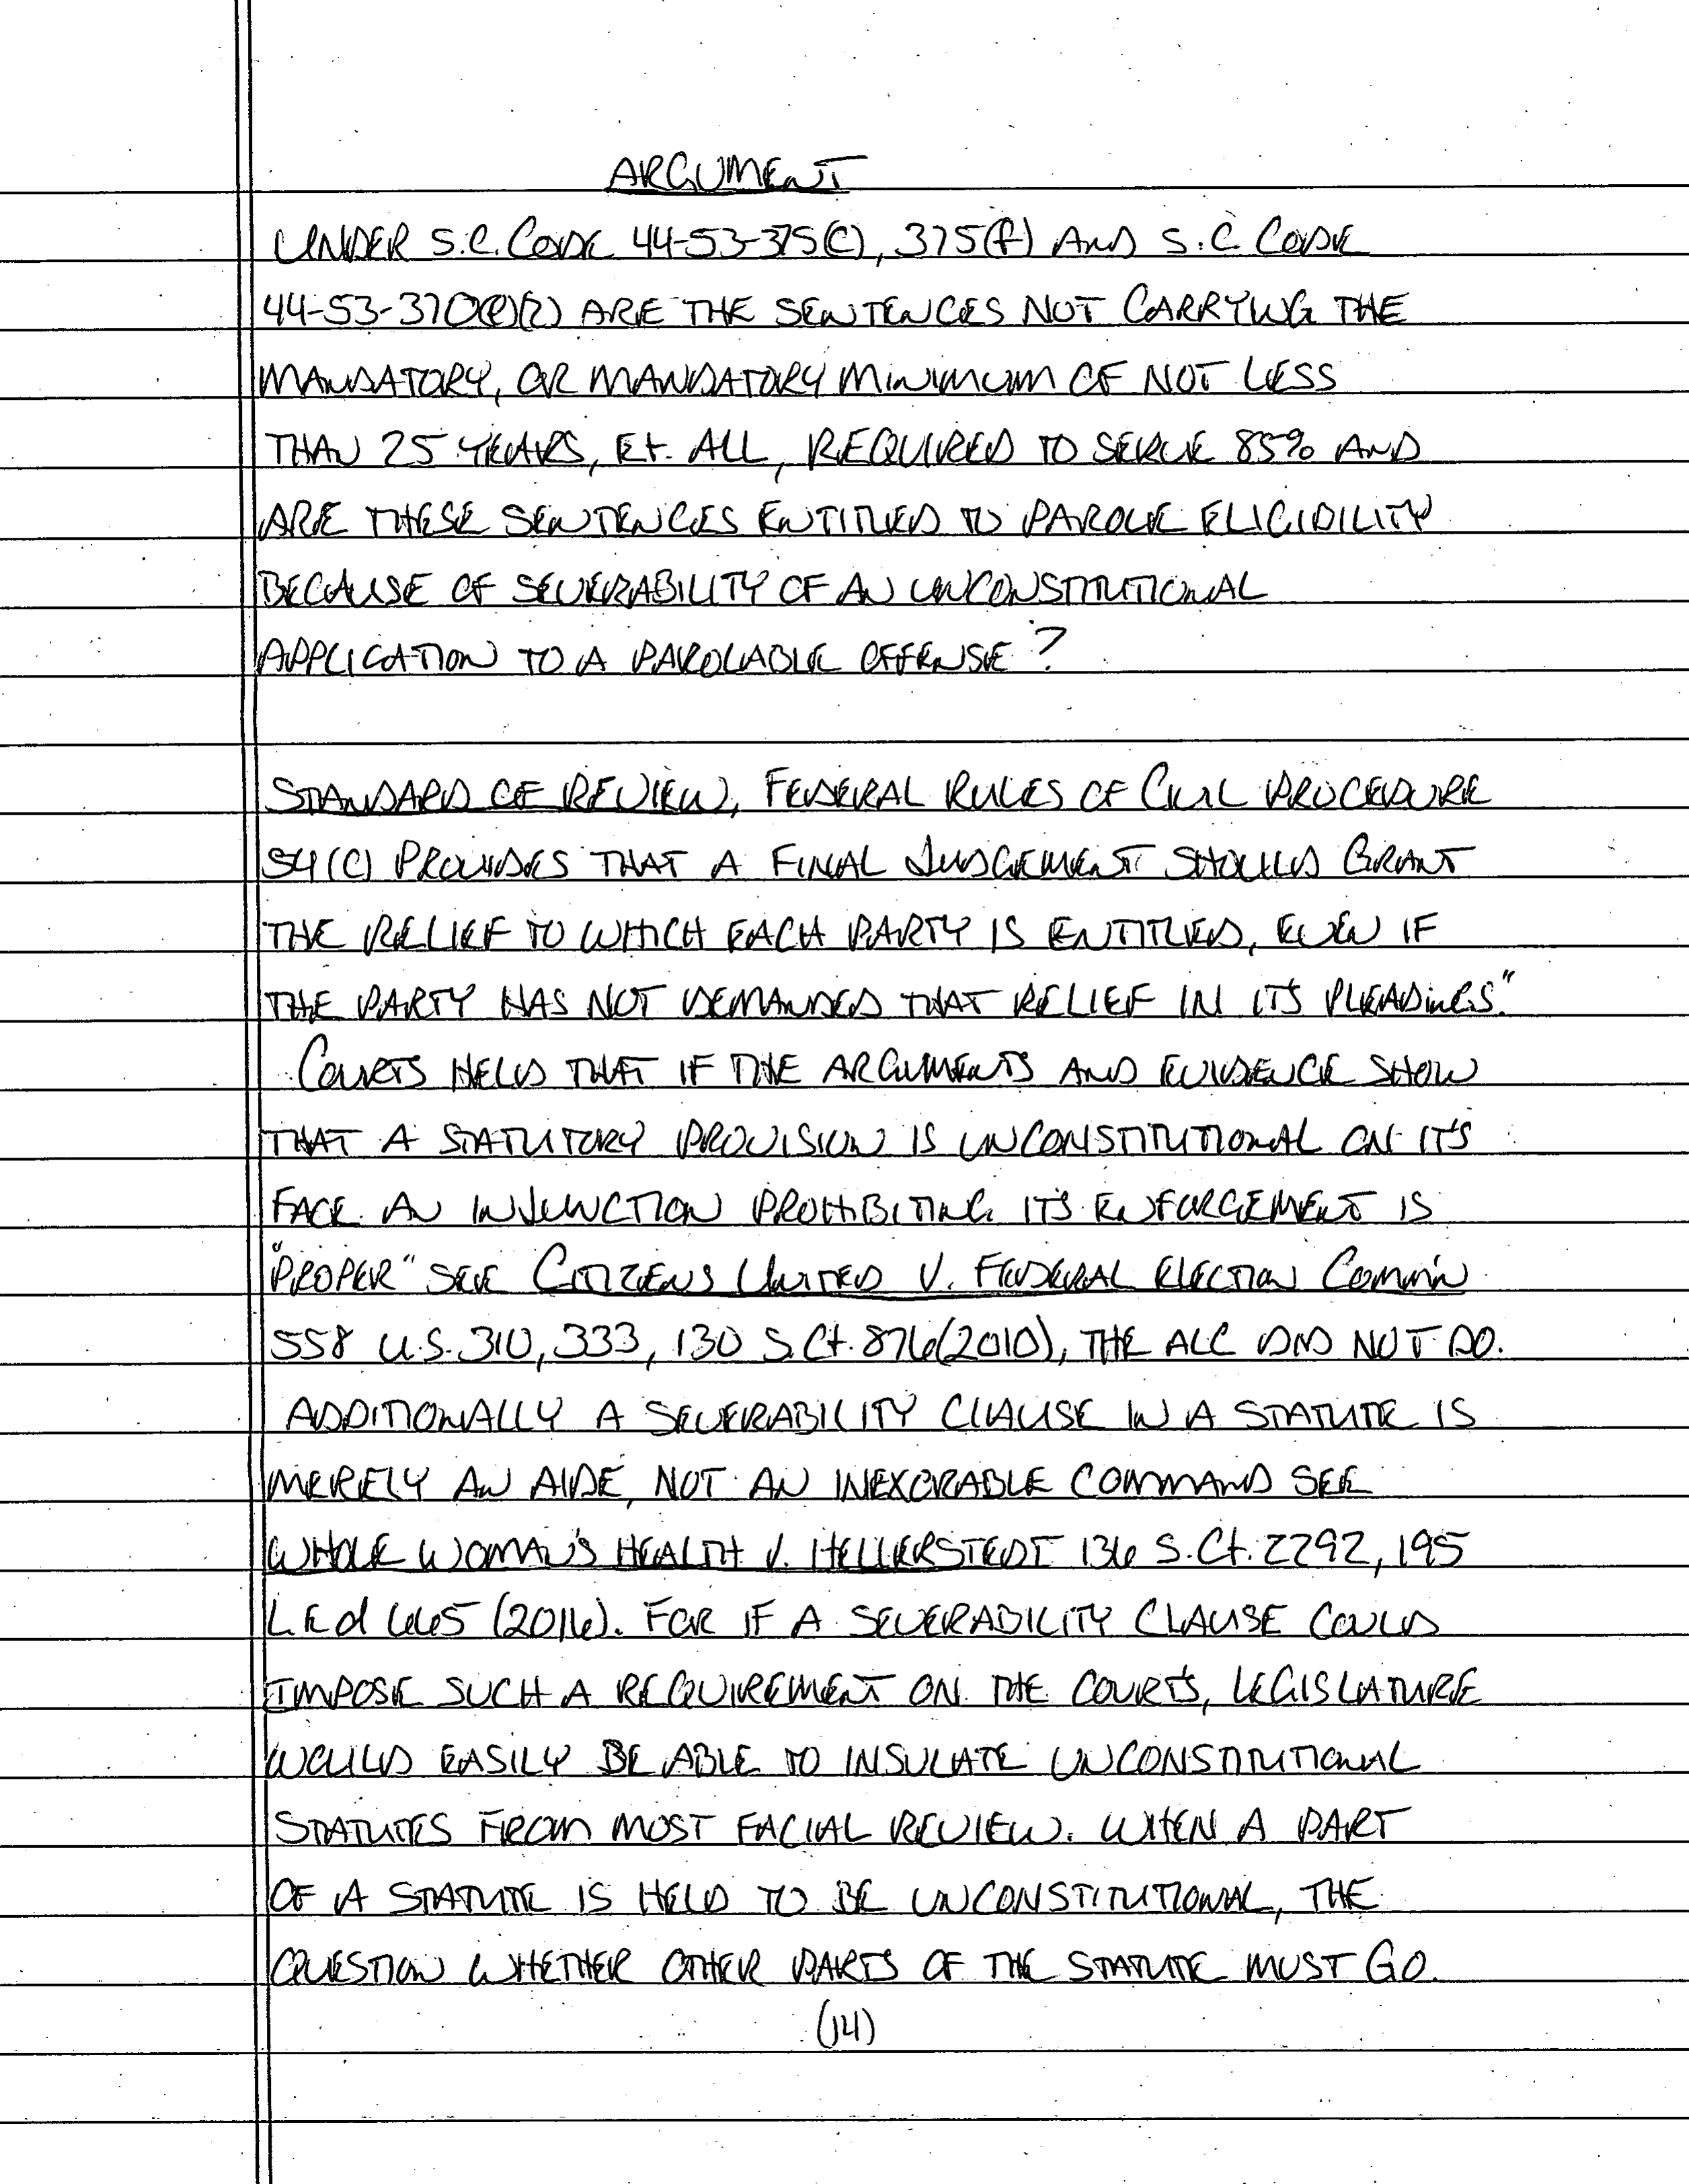 ARGUMENT
UNDER S.C. CODE 44-53-375(C), 375(F) AND S.C CODE
44-53-370(e)(2) ARE THE SENTENCES NOT CARRYING THE
MANDATORY, OR MANDATORY MINIMUM OF NOT LESS
THAN 25 YEARS, Et. ALL, REQUIRED TO SERVE 85% AND
ARE THESE SENTENCES ENTITLED TO PAROLE ELIGIBILITY
BECAUSE OF SEVERABILITY OF AN UNCONSTITUTIONAL
APPLICATION TO A PAROLABLE OFFENSE?
STANDARD OF REVIEW, FEDERAL RULES OF CIVIL PROCEDURE
54(C) PROVIDES THAT A FINAL JUDGEMENT SHOULD GRANT
THE RELIEF TO WHICH EACH PARTY IS ENTITLED, EVEN IF
THE PARTY HAS NOT DEMANDED THAT RELIEF IN ITS PLEADINGS."
COURTS HELD THAT IF THE ARGUMENTS AND EVIDENCE SHOW
THAT A STATUTORY PROVISION IS UNCONSTITUTIONAL ON IT'S
FACE AN INJUNCTION PROHIBITING ITS ENFORCEMENT IS
"PROPER" SEE CITIZENS UNITED V. FEDERAL ELECTION Comm'n
558 U.S. 310, 333, 130 S.Ct. 876(2010), THE ALC DID NOT DO.
ADDITIONALLY A SEVERABILITY CLAUSE IN A STATUTE IS
MERELY AN AIDE, NOT AN INEXORABLE COMMAND SEE
WHOLE WOMAN'S HEALTH V. HELLERSTEDT 136 S.Ct. 2292, 195
L.Ed 665 (2016). FOR IF A SEVERABILITY CLAUSE COULD
IMPOSE SUCH A REQUIREMENT ON THE COURTS, LEGISLATURE
WOULD EASILY BE ABLE TO INSULATE UNCONSTITUTIONAL
STATUTES FROM MOST FACIAL REVIEW. WHEN A PART
OF A STATUTE IS HELD TO BE UNCONSTITUTIONAL, THE
QUESTION WHETHER OTHER PARTS OF THE STATUTE MUST GO.
(14)